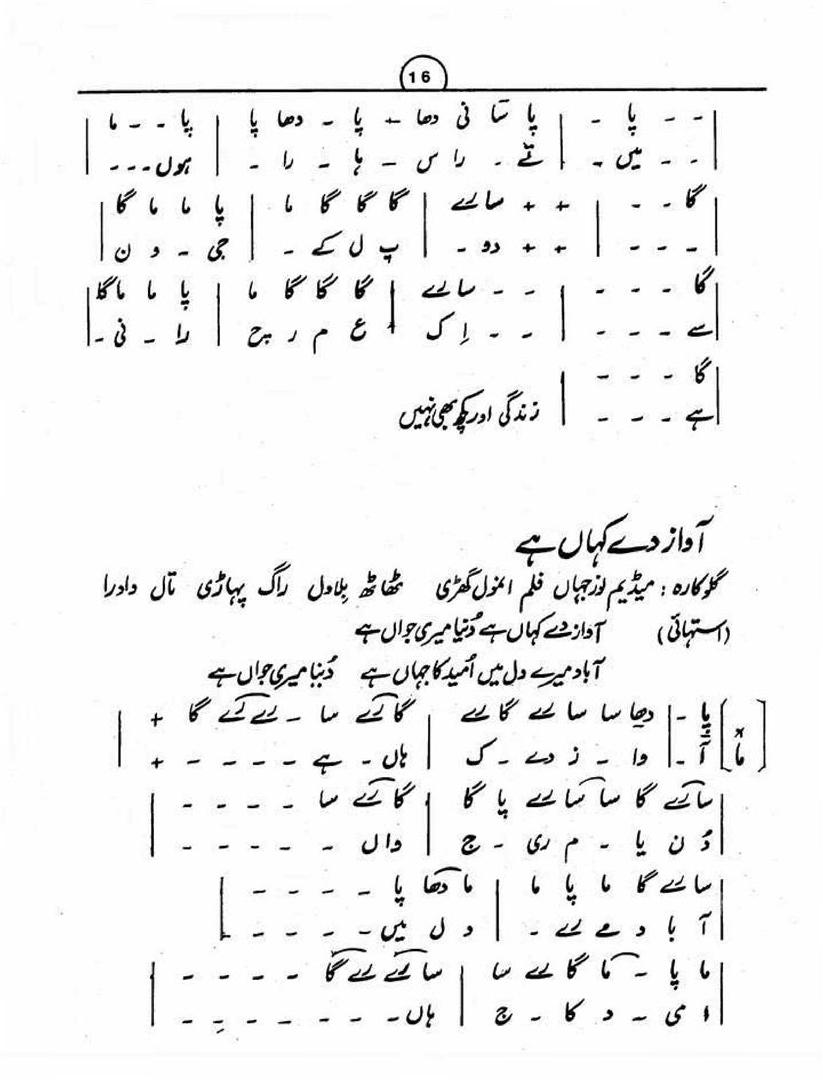 16
- - پا - | پا سا نی دھا + پا - دھا پا | پا - - ما |
- - میں - | نے - را س - ہا - را - | ہوں - - - |
| گا - - | + + سا رے | گا گا گا ما | پا ما ما گا |
| - - - | + + دو - | پ ل کے - | جی - و ن |
| گا - - - | - - سا رے | گا گا گا ما | پا ما ما گا |
| سے - - - | - - اِ ک | ع م ر پح | را - نی - |
| گا - - - |
| ہے - - - | زندگی اور کچھ بھی نہیں
آواز دے کہاں ہے
گلوکارہ : میڈیم نورجہاں فلم انمول گھڑی ٹھاٹھ بِلاول راگ پہاڑی تال دادرا
(استہائی) آواز دے کہاں ہے دُنیا میری جواں ہے
آباد میرے دل میں اُمید کا جہاں ہے دُنیا میری جواں ہے
[ ما ] پا - | دھا سا سا رے گا رے | گا رے سا - رے رے گا +
آ - | وا - ز دے - ک | ہاں - ہے - - - - +
| سا رے گا سا سا رے پا گا | گا رے سا - - - - |
| دُ ن یا - م ری - ج | واں - - - - - |
| سا رے گا ما پا ما | ما دھا پا - - - - |
| آ با د مے رے - | د ل میں - - - - |
| ما پا - ما گا رے سا | سا رے رے گا - - - - |
| ا می - د کا - ج | ہاں - - - - - - - |